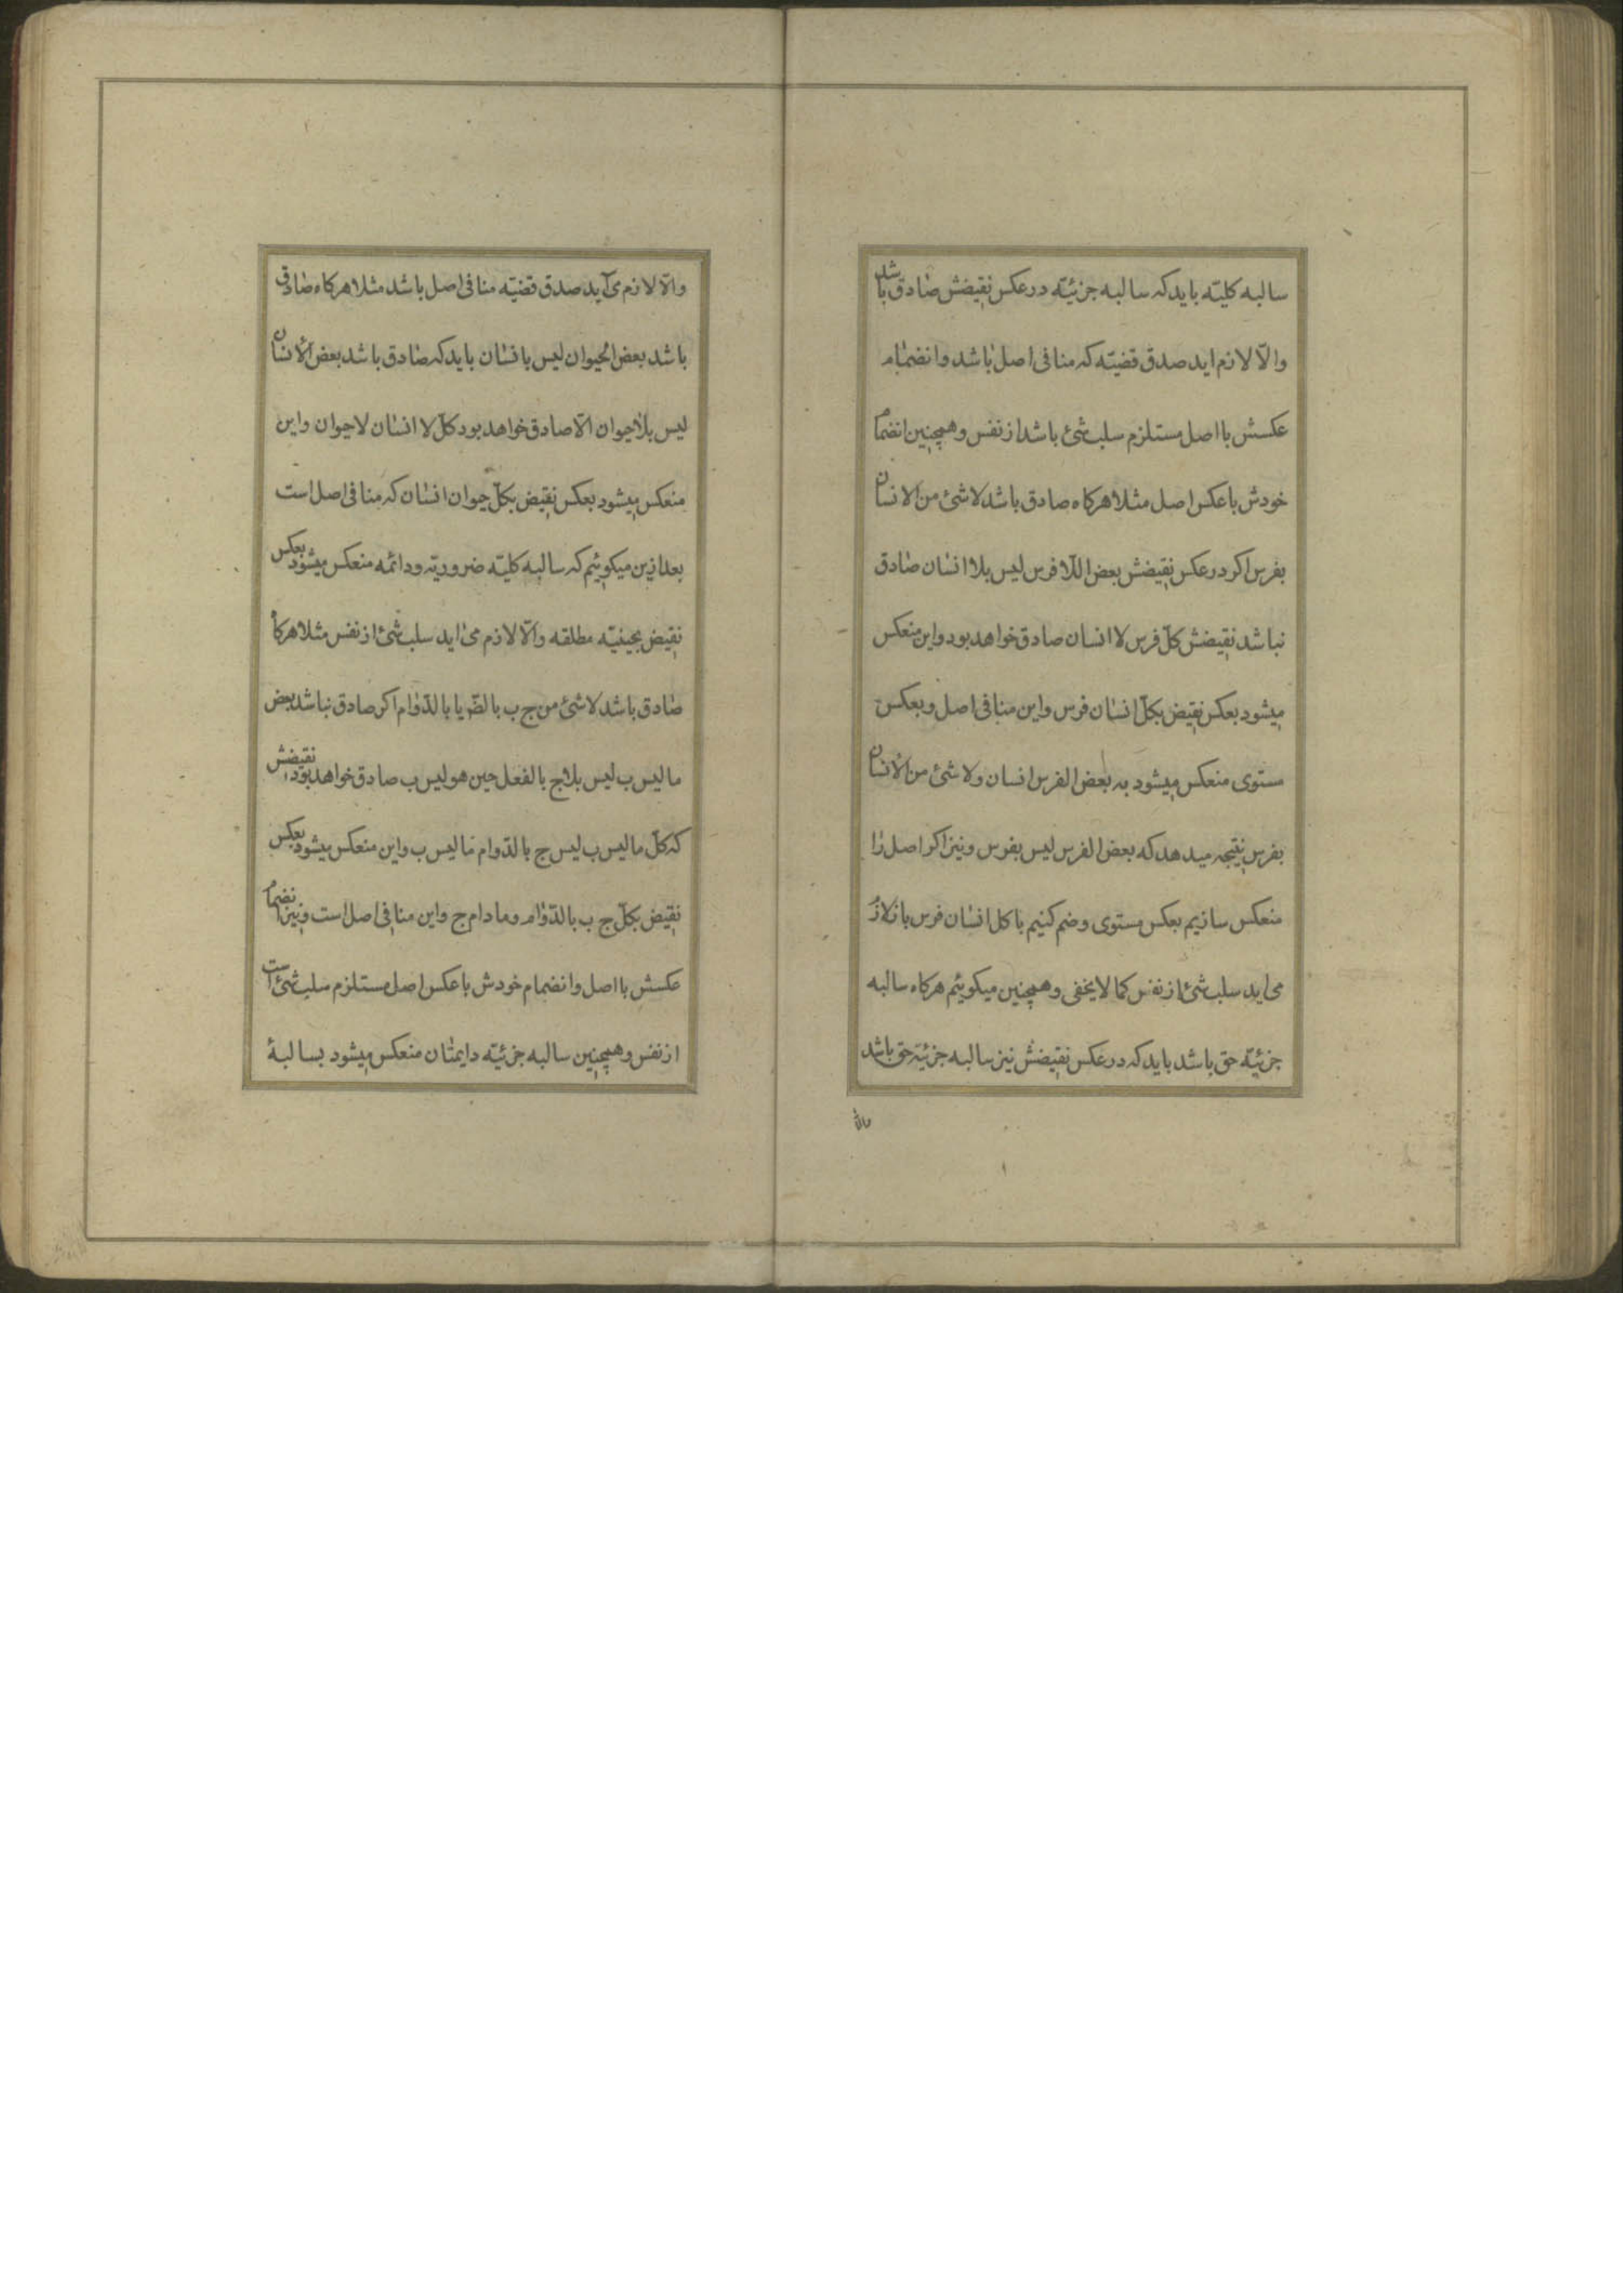 سالبه کلیّه باید که سالبه جزئیّه در عکس نقیضش صادق باشد
والّا لازم اید صدق قضیّه که منافی اصل باشد وانضمام
عکسش با اصل مستلزم سلب شیٔ باشد از نفس وهمچنین انضمام
خودش با عکس اصل مثلا هرکاه صادق باشد لاشیٔ من الانسان
بفرس اکر در عکس نقیضش بعض اللّافرس لیس بلا انسان صادق
نباشد نقیضش کلّ فرس لا انسان صادق خواهد بود واین منعکس
میشود بعکس نقیض بکلّ انسان فرس واین منافی اصل وبعکس
مستوی منعکس میشود به بعض الفرس انسان ولاشیٔ من الانسان
بفرس نتیجه میدهد که بعض الفرس لیس بفرس ونیز اکر اصل را
منعکس سازیم بعکس مستوی وضم کنیم با کل انسان فرس باز لازم
می اید سلب شیٔ از نفس کما لایخفی وهمچنین میکوئیم هرکاه سالبه
جزئیّه حق باشد باید که در عکس نقیضش نیز سالبه جزئیّه حق باشد
والّا
والّا لازم می آید صدق قضیّه منافی اصل باشد مثلا هرکاه صادق
باشد بعض الحیوان لیس بانسان باید که صادق باشد بعض الّلا انسان
لیس بلاحیوان الّا صادق خواهد بود کلّ لا انسان لاحیوان واین
منعکس میشود بعکس نقیض بکلّ حیوان انسان که منافی اصل است
بعد ازین میکوئیم که سالبه کلیّه ضروریّه ودائمه منعکس میشود بعکس
نقیض بحینیّه مطلقه والّا لازم می اید سلب شیٔ از نفس مثلا هرکاه
صادق باشد لاشیٔ من ج ب بالضّ یا بالدّوام اکر صادق نباشد بعض
ما لیس ب لیس بلاج بالفعل حین هو لیس ب صادق خواهد بود نقیضش
که کلّ ما لیس ب لیس ج بالدّوام مالیس ب واین منعکس میشود بعکس
نقیض بکلّ ج ب بالدّوام ومادام ج واین منافی اصل است ونیز انضمام
عکسش با اصل وانضمام خودش با عکس اصل مستلزم سلب شیٔ است
از نفس وهمچنین سالبه جزئیّه دایمتان منعکس میشود بسالبهٔ